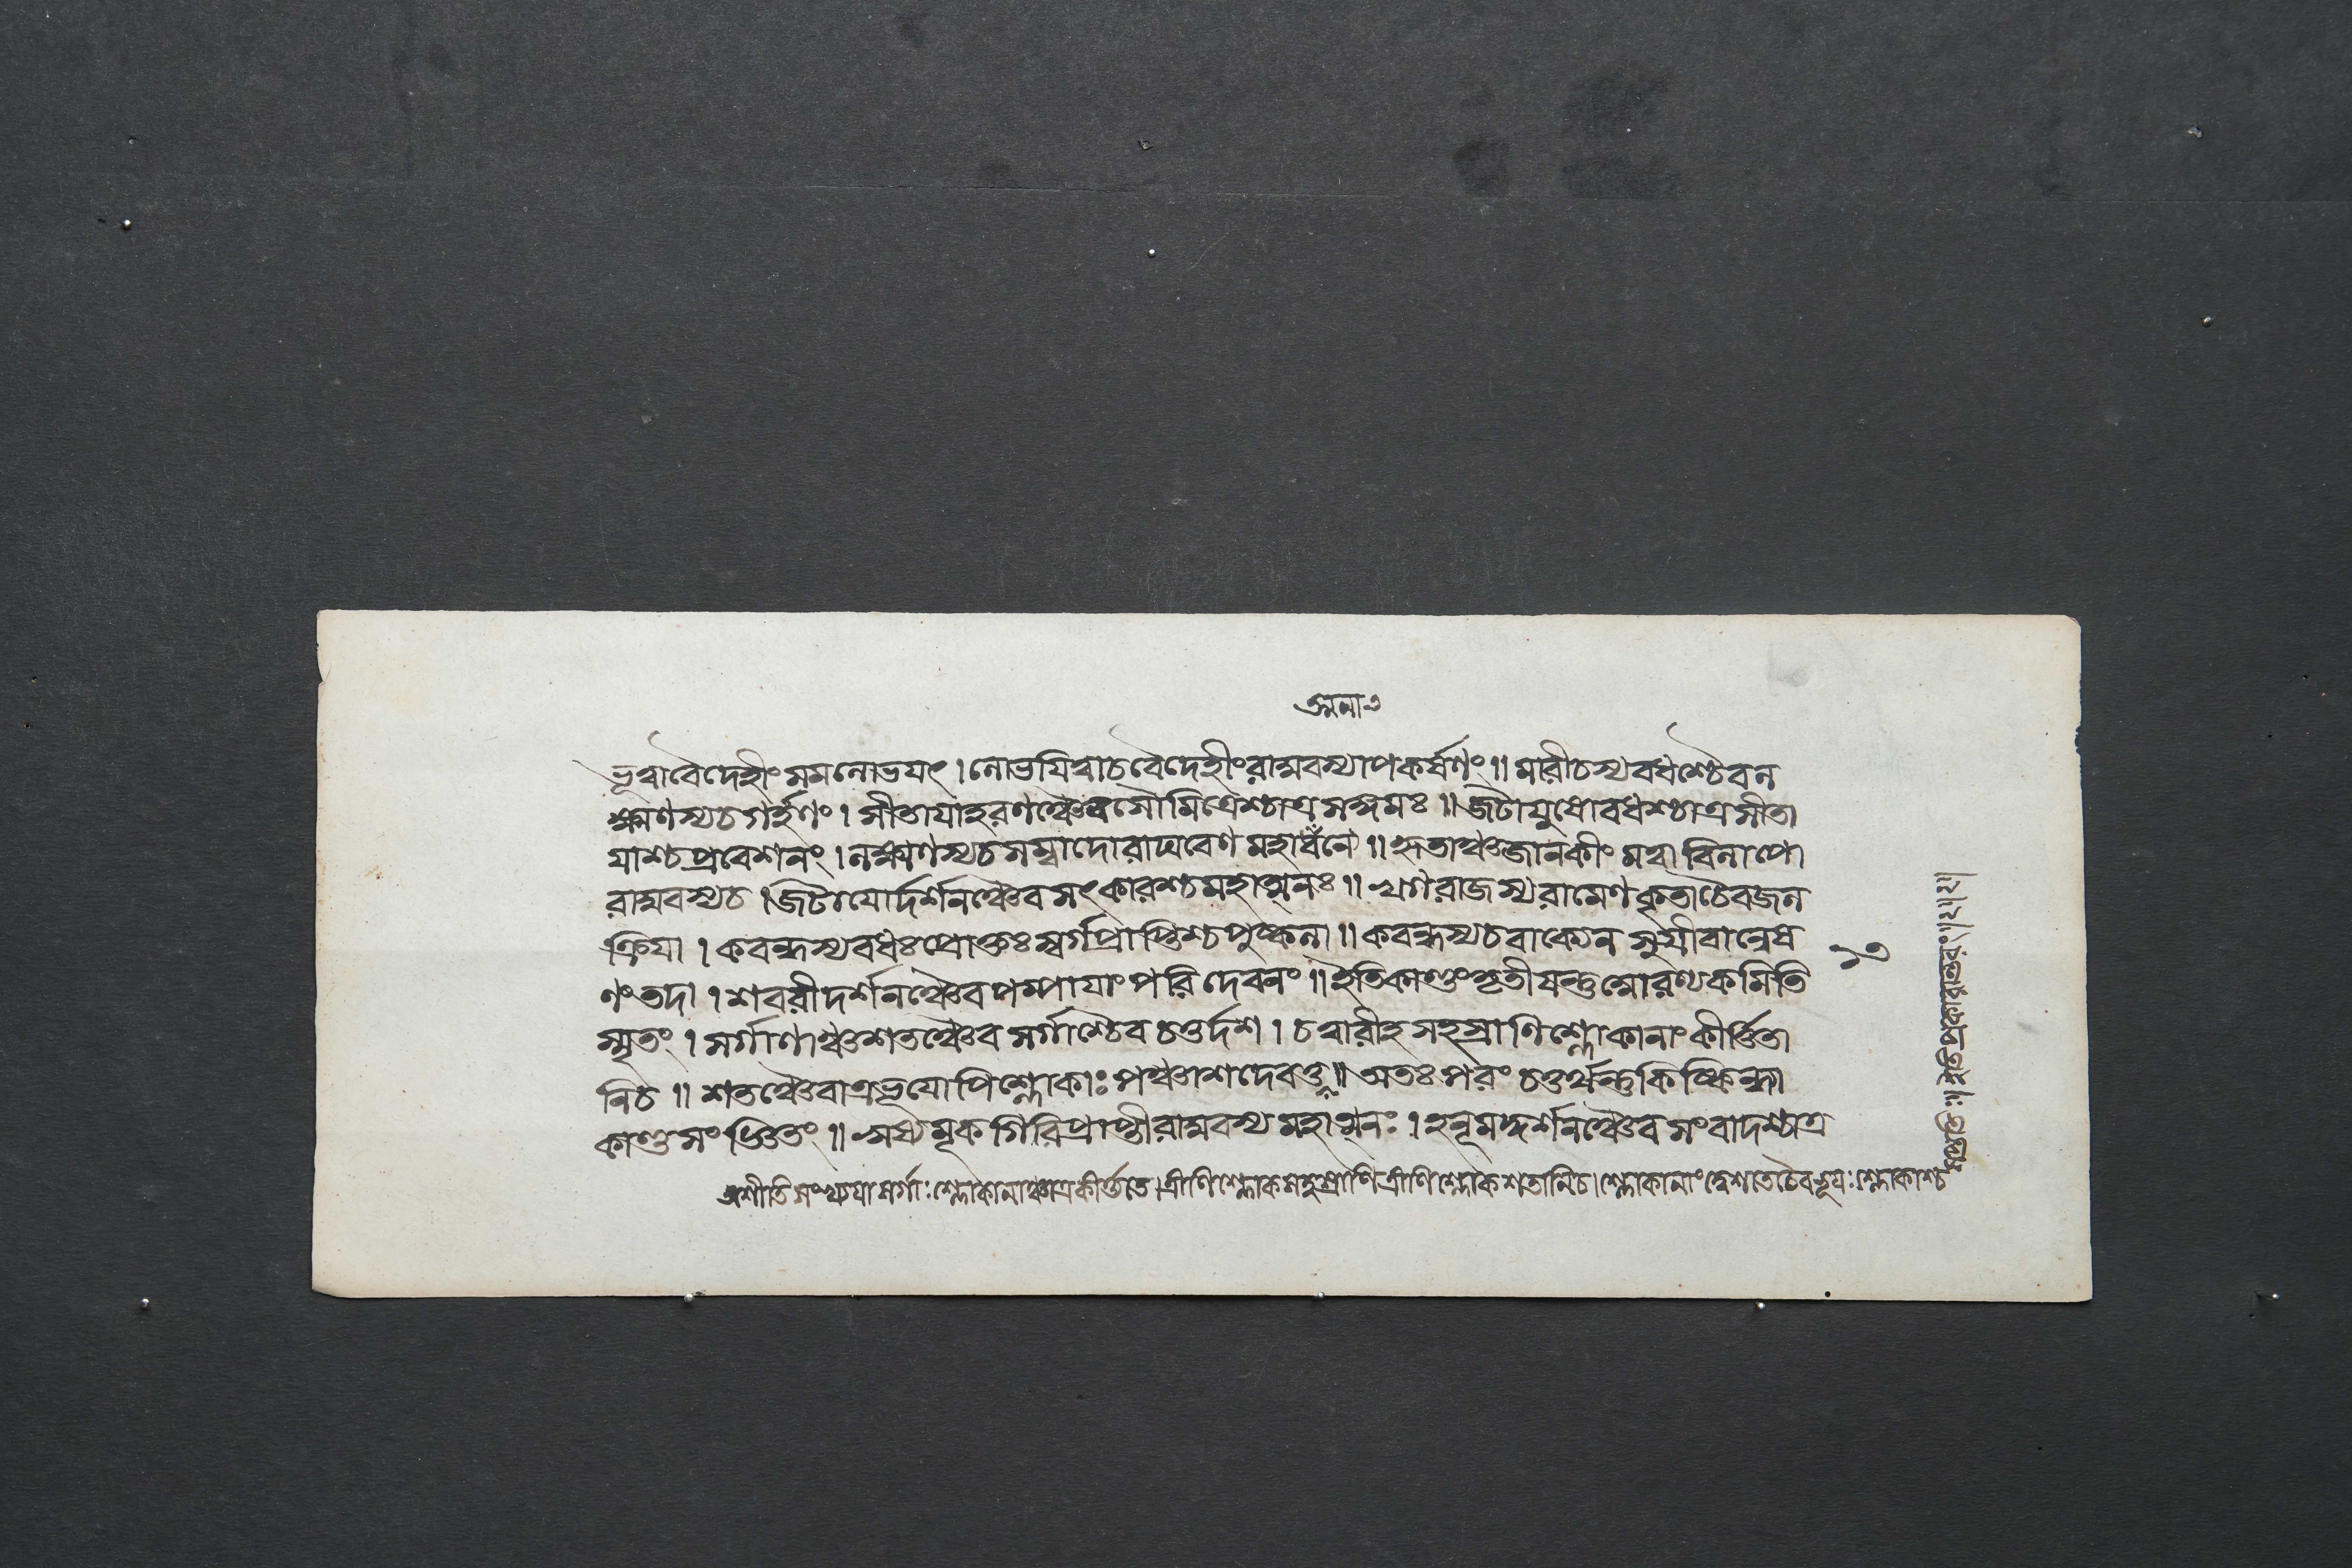 ভূত্বাবৈদেহীং সমলোভযৎ । লোভযিত্বাচবৈদেহীংরাঘবস্যাপকর্ষণং ॥ মারীচস্যবধশ্চৈবল
ক্ষ্মণস্যচগর্হণং । সীতাযাহরণঞ্চৈবসৌমিত্রেশ্চাত্রসঙ্গমঃ ॥ জটাযুষোবধশ্চাত্রসীতা
যাশ্চপ্রবেশনং । লক্ষ্মণস্যচসম্বাদোরাঘবেণ মহাবনে ॥ হৃতাঞ্চজানকীং মত্বা বিলাপো
রাঘবস্যচ । জটাযোর্দর্শনঞ্চৈব সৎকারশ্চমহাত্মনঃ ॥ খগরাজস্যরামেণকৃতাচৈবজল
ক্রিযা । কবন্ধস্যবধঃপ্রোক্তঃস্বর্গপ্রাপ্তিশ্চপুষ্কলা ॥ কবন্ধস্যচবাক্যেন সুগ্রীবান্বেষ
ণং তদা । শবরীদর্শনঞ্চৈবপম্পাযাংপরিদেবনং ॥ ইতিকাণ্ডংতৃতীযন্তুআরণ্যকমিতি
স্মৃতং । সর্গাণাঞ্চশতঞ্চৈব সর্গাশ্চৈব চতুর্দশ । চত্বারীহসহস্রাণিশ্লোকানাং কীর্ত্তিতা
নিচ ॥ শতঞ্চৈবাত্রভূযোপিশ্লোকাঃপঞ্চাশদেবতু ॥ অতঃপরং চতুর্থন্তুকিষ্কিন্ধা
কাণ্ডসংজ্ঞিতং ॥ ঋষ্যমূকগিরিপ্রাপ্তীরাঘবস্য মহাত্মনঃ । হনূমদ্দর্শনঞ্চৈব সংবাদশ্চাত্র
অশীতিসংখ্যযা সর্গাঃশ্লোকানাঞ্চাত্রকীর্ত্ত্যতে । ত্রীণিশ্লোকসহস্রাণিত্রীণিশ্লোকশতানিচ । শ্লোকানাংদ্বেশতেচৈবভূযঃশ্লোকাশ্চ